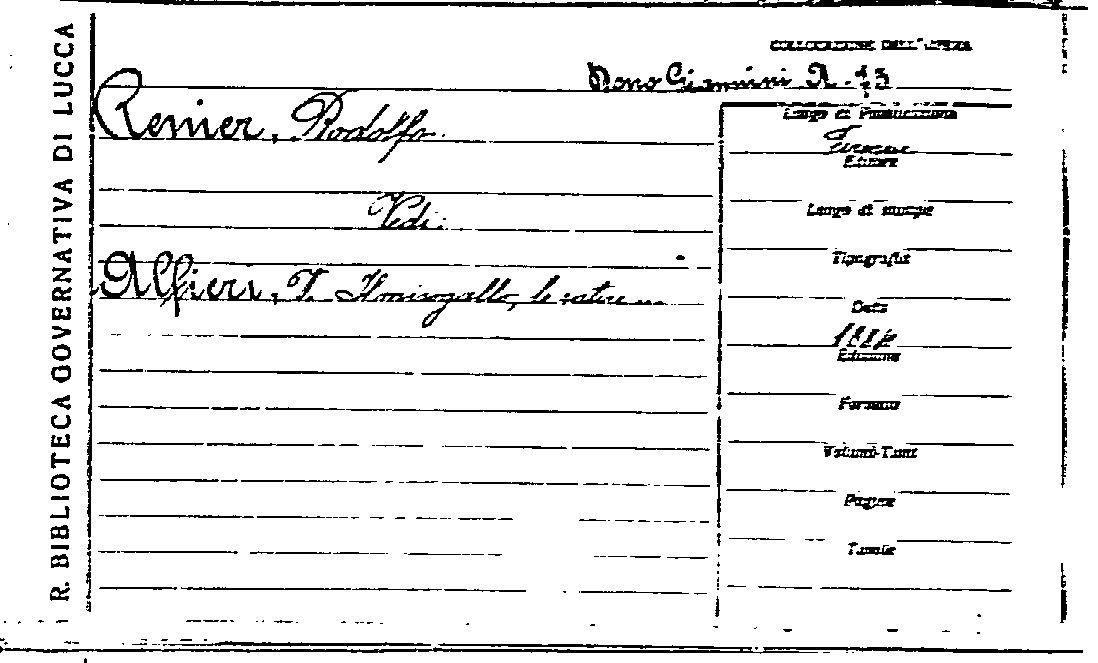 R. BIBLIOTECA GOVERNATIVA DI LUCCA
COLLOCAZIONE DELL'OPERA
Dono Giannini A. 43
Renier, Rodolfo.
Vedi:
Alfieri, V. Il misogallo, le satire ...
Luogo di Pubblicazione
Firenze
Editore
Luogo di stampa
Tipografia
Data
Edizione
Formato
Volumi-Tomi
Pagine
Tavole